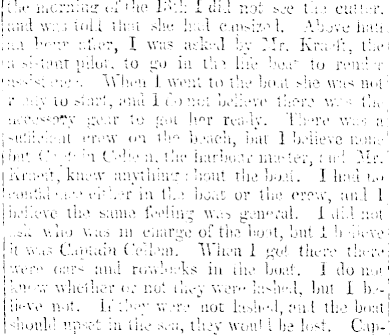 the morning of the 18th I did not see the cutter,
and was told that she had capsized. About half
an hour after, I was asked by Mr. Kraeft, the
assistant pilot, to go in the life boat to render
assistance. When I went to the boat she was not
ready to start, and I do not believe there was the
necessary gear to get her ready. There was a
sufficient crew on the beach, but I believe none
but Captain the harbour master, and Mr.
Kraeft, knew anything about the boat. I had no
confidence either in the boat or the crew, and I
believe the same feeling was general. I did not
ask who was in charge of the boat, but I believe
it was Captain When I got there there
were oars and rowlocks in the boat. I do not
know whether or not they were lashed, but I be-
lieve not. If they were not lashed, and the boat
should upset in the sea, they would be lost.